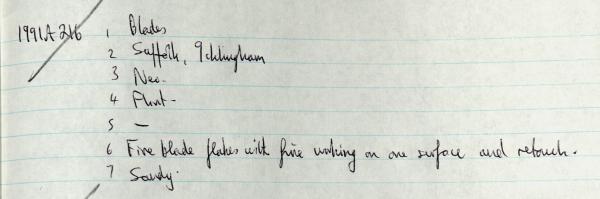 1991A 216 1 Blades
2 Suffolk, Icklingham
3 Neo.
4 Flint-
5 —
6 Five blade flakes with fine working on one surface and retouch.
7 Sandy.